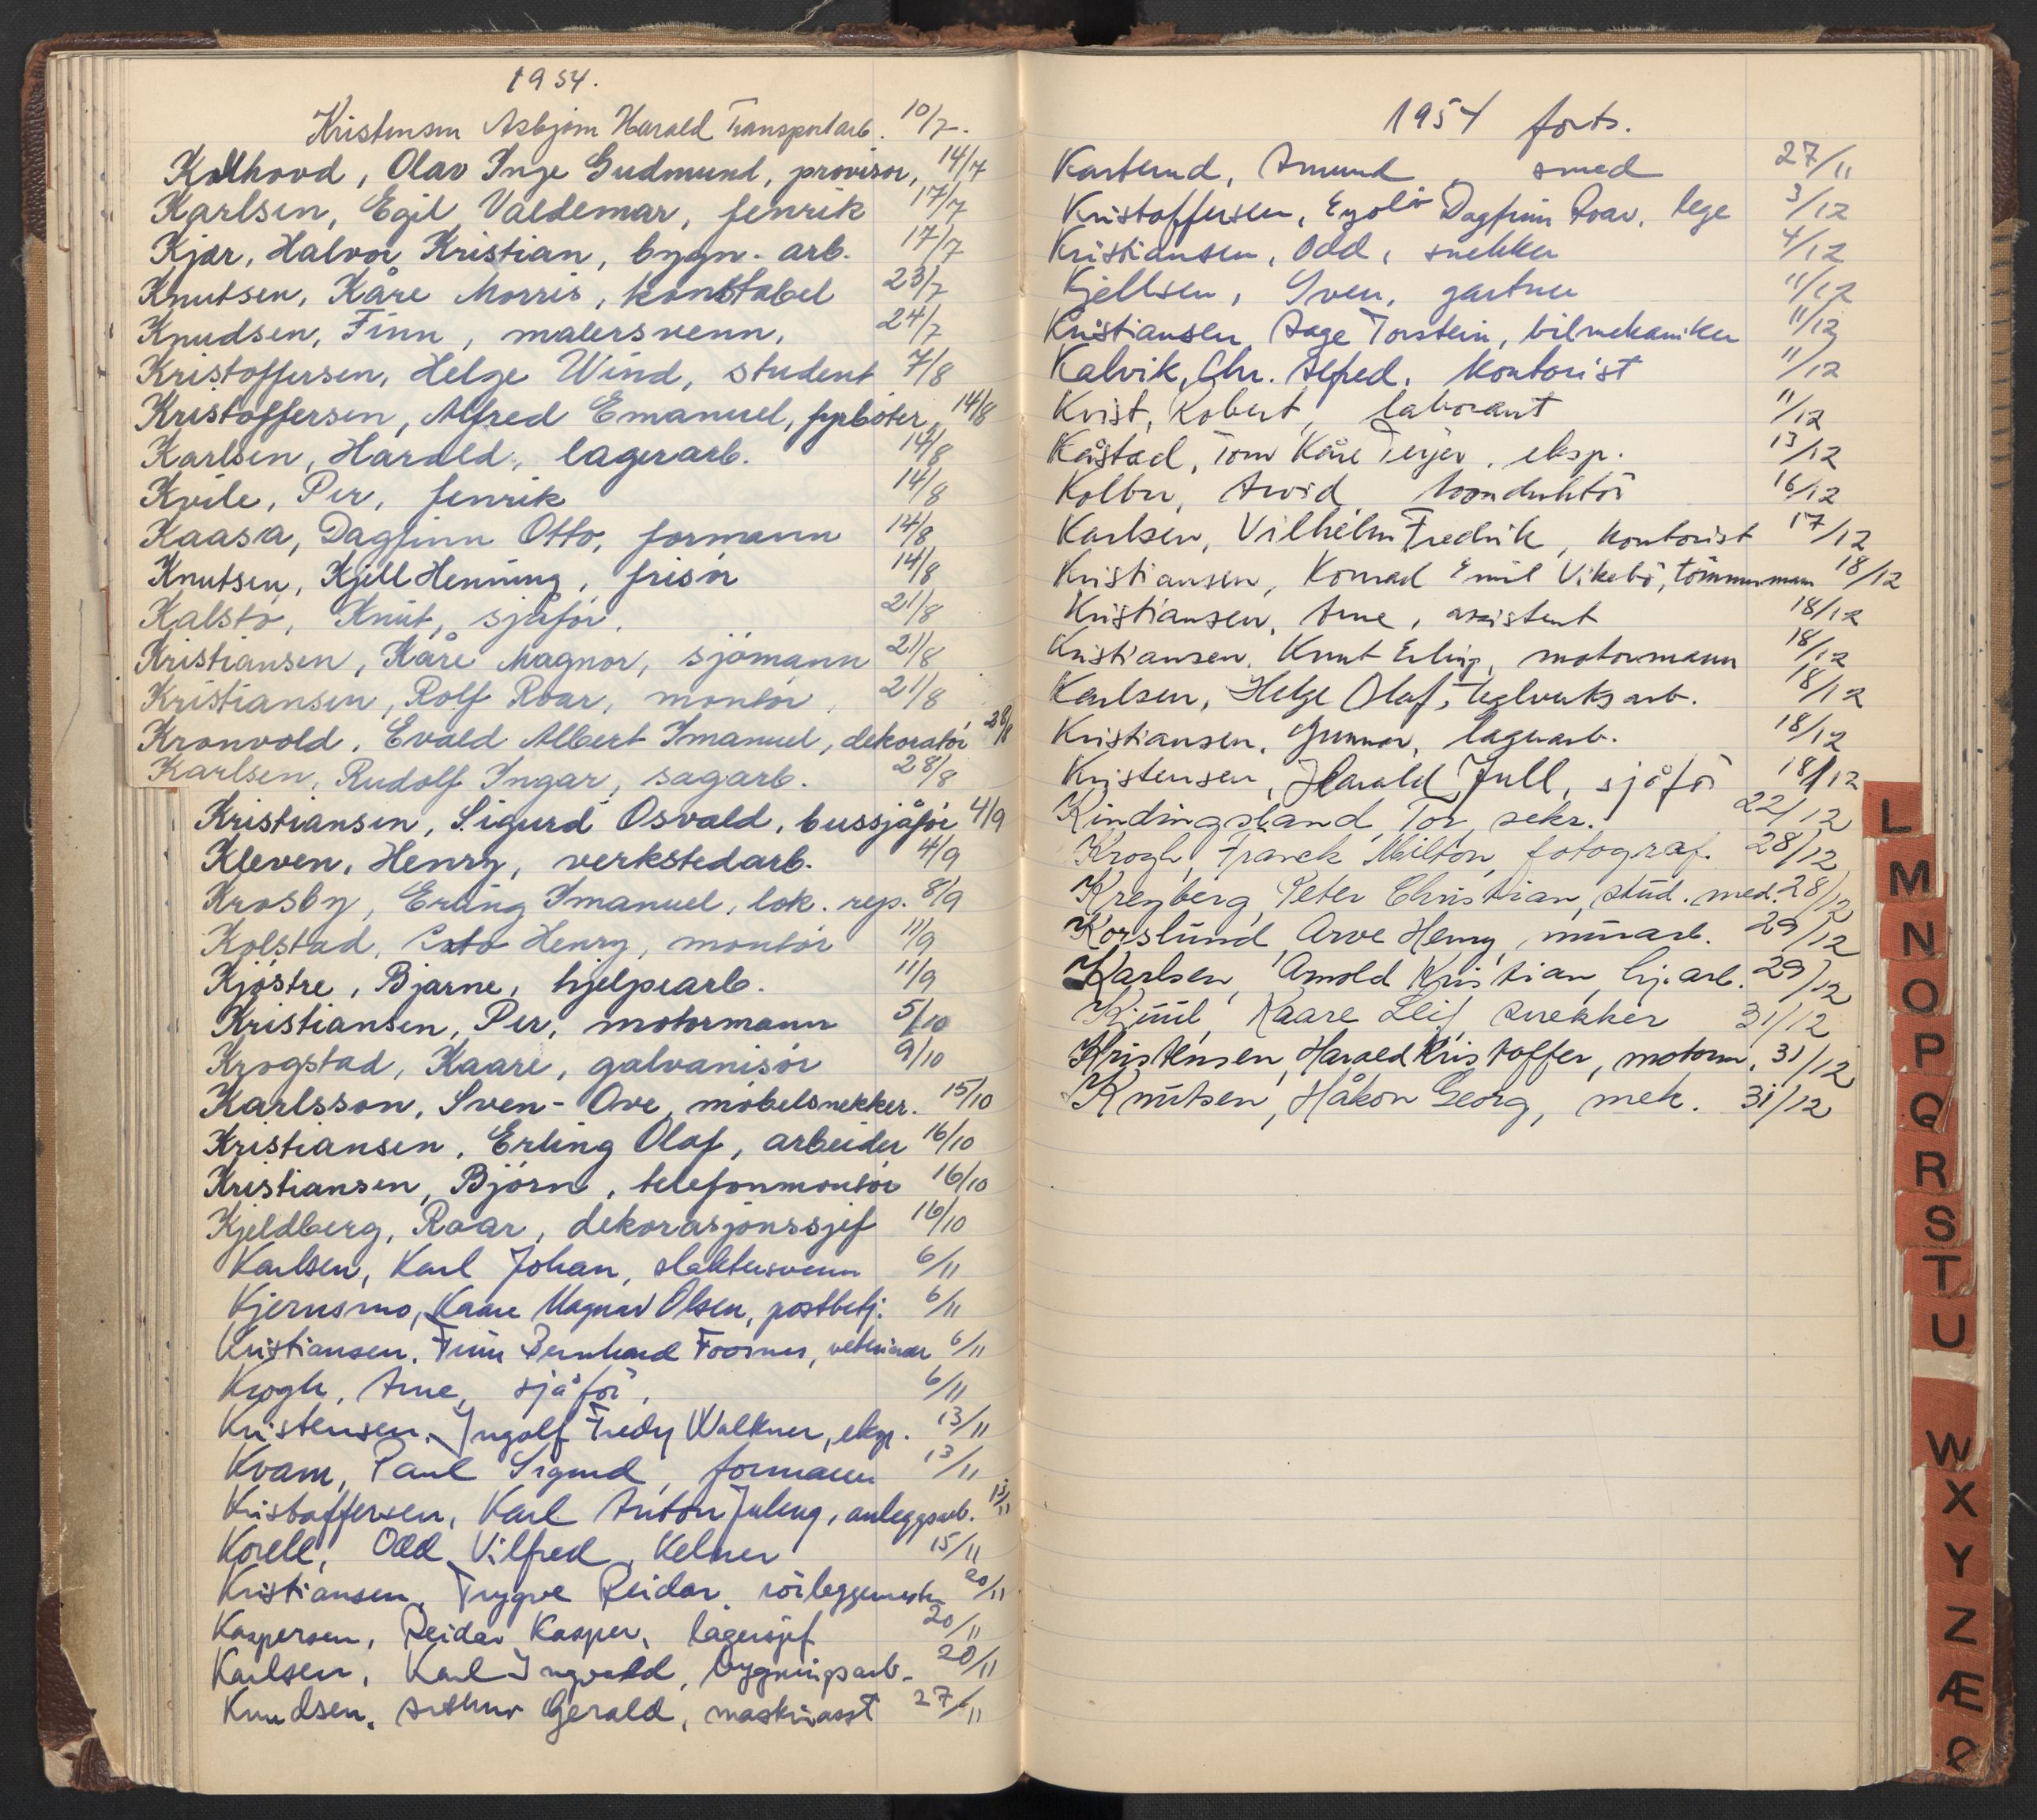 1954.
Kristensen Asbjørn Harald Transportarb. 10/7.
Kolhovd, Olav Inge Gudmund, provisor, 14/7
Karlsen, Egil Valdemar, fenrik 17/7
Kjær, Halvor Kristian, bygn. arb. 17/7
Knutsen, Kåre Morris, konstabel 23/7
Knudsen, Finn, malersvenn, 24/7
Kristoffersen, Helge Wind, student 7/8
Kristoffersen, Alfred Emanuel, fyrbøter, 14/8
Karlsen, Harald, lagerarb. 14/8
Kvile, Per, fenrik 14/8
Kaasa, Dagfinn Otto, formann 14/8
Knutsen, Kjell Henning, frisør 14/8
Kalstø, Knut, sjåfør, 21/8
Kristiansen, Kåre Magnor, sjömann 21/8
Kristiansen, Rolf Roar, montør, 21/8
Kronvold, Evald Albert Imanuel, dekoratør 28/8
Karlsen, Rudolf Ingar, sagarb. 28/8
Kristiansen, Sigurd Osvald, bussjåfør 4/9
Kleven, Henry, verkstedarb. 4/9
Krosby, Erling Imanuel, lok. rep. 8/9
Kolstad, Cato Henry, montør 11/9
Kjøstre, Bjarne, hjelpearb. 11/9
Kristiansen, Per, motormann 5/10
Krogstad, Kaare, galvanisør 9/10
Karlsson, Sven-Ove, møbelsnekker. 15/10
Kristiansen, Erling Olaf, arbeider 16/10
Kristiansen, Bjørn, telefonmontør 16/10
Kjeldberg, Roar, dekorasjonssjef 16/10
Karlsen, Karl Johan, slaktersvenn 6/11
Kjernsmo, Kaare Magnar Olsen, postbetj. 6/11
Kristiansen, Finn Bernhard, veterinær 6/11
Krogh, Arne, sjåför, 6/11
Kristensen, Ingolf Fredy Walkner, eksp. 13/11
Kvam, Paul Sigurd, formann 13/11
Kristoffersen, Karl Anton, anleggsarb. 13/11
Korell, Odd Vilfred, Kelner 15/11
Kristiansen, Trygve Reidar, rörleggermester 20/11
Kaspersen, Reidar Kasper, lagersjef 20/11
Karlsen, Karl Ingvald, bygningsarb. 20/11
Knudsen, Arthur Gerald, maskinasst 27/11
1954 forts.
Karterud, Amund, smed 27/11
Kristoffersen, Eyolv Dagfinn Roar, lege 3/12
Kristiansen, Odd, snekker 4/12
Kjellsen, Sven, gartner 11/12
Kristiansen, Aage Torstein, bilmekaniker 11/12
Kalvik, Chr. Alfred, kontorist 11/12
Kvist, Robert, laborant 11/12
Kåstad, Tom Kåre Terjer, eksp. 13/12
Kolbu, Arvid konduktör 16/12
Karlsen, Vilhelm Fredrik, kontorist 17/12
Kristiansen, Konrad Emil Vikebö, tömmermann 18/12
Kristiansen, Arne, assistent 18/12
Kristiansen, Knut Erling, motormann 18/12
Karlsen, Helge Olaf, teglverksarb. 18/12
Kristiansen, Gunnar, lagerarb. 18/12
Kristensen, Harald Jull, sjåför 18/12
Kindingstand, Tor, sekr. 22/12
Krogh, Franck Milton, fotograf. 28/12
Kreyberg, Peter Christian, stud. med. 28/12
Korslund, Arve Henry, murarb. 29/12
Karlsen, Arnold Kristian, hj. arb. 29/12
Kaare Leif, snekker 31/12
Kristensen, Harald Kristoffer, motorm. 31/12
Knutsen, Håkon Georg, mek. 31/12
L
M
N
O
P
Q
R
S
T
U
W
X
Y
Z
Æ